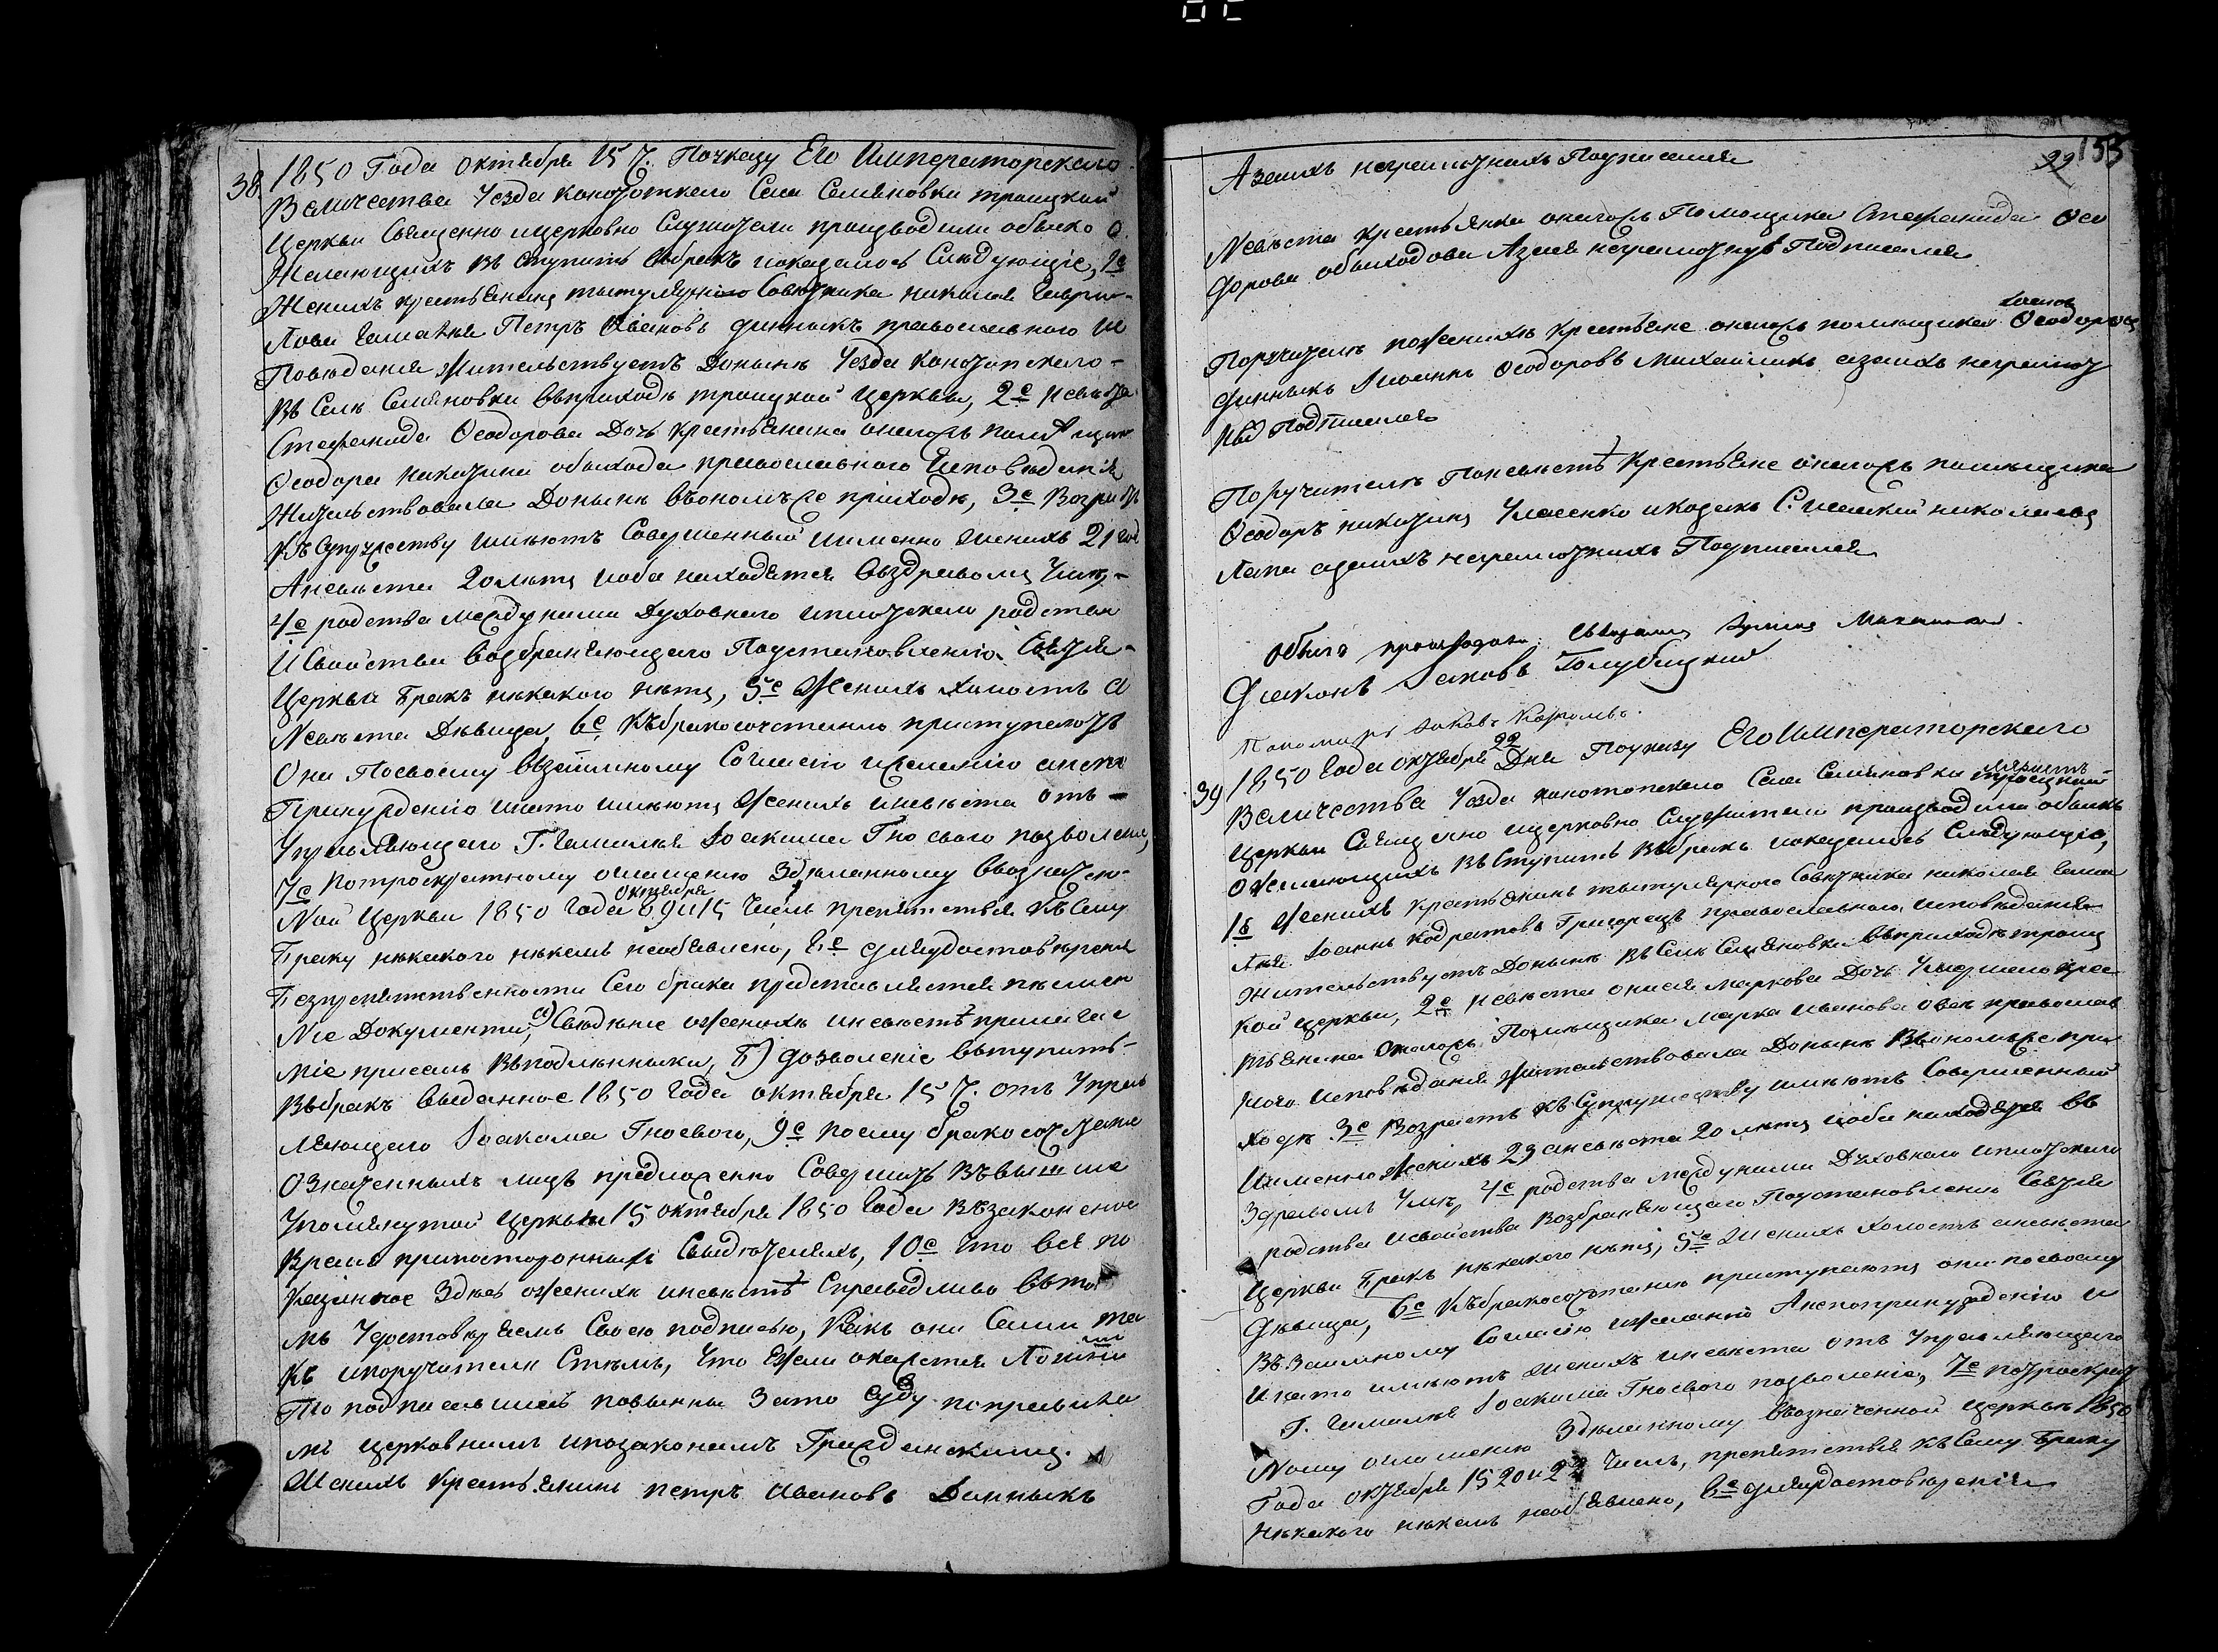 38. 1850 Года октября 15 ч. По указу Его Императорского
Величества Уезда конотопкаго Села Семяновки троицкой
Церкви Священно ицерковно Служители производили обыскъ о
Желающихъ въ ступить вбракъ иоказалось Следующіе, 1е
Женихъ крестьянинъ тытулярного Совѣтника николая Гаври-
лова Петръ Ивановъ православного ис
Повѣданія жительствуетъ Донынѣ Уезда конотопскаго-
въ Селѣ Семяновки вприходѣ троицкой Церкви, 2е невѣста
Стефанида Ѳеодорова Дочь крестьянина оногожъ помѣщика
Ѳеодора никитина обыхода православного Исповѣданія
Жительствовала Донынѣ въономъже приходѣ, 3е Возрастъ
къ Супружеству имѣютъ Совершенный именно Женихъ 21 год
Аневѣста 20 лѣтъ иоба находятся въздравомъ Умѣ,-
4е родства между ними Духовнаго иплотскаго родства
И Свойства возбраняющаго Поустановленію Святыя-
Церкви Бракъ никакого нѣтъ, 5е Женихъ Холостъ а
Невѣста Дѣвица, 6е къбракосочетанію приступаютъ
Они Посвоему взаимному Согласію ижеланію анепо
Принужденію инато имѣютъ Женихъ иневѣста отъ-
Управляющаго Г. Іоакима Гноеваго позволеніе,
7е Потроекратному оглашенію Здѣланному возначен-
Ной Церкви 1850 года октября 8, 9 и 15 Числъ препятствія къ Сему
Браку никакого никемъ необявлено, 8е дляудостовѣренія
Безпрепятственности Сего брака представляется писмен
Ніе Документи, а) Свѣдѣніе оженихѣ иневѣстѣ
Б) дозволеніе вступить-
Вбракъ выданное 1850 года октября 15 ч. отъ Управ
ляющаго Іоакима Гноевого, 9е посему бракосочетаніе
Означенныхъ лицъ предложенно Совершить Въвыше
Упомянутой Церкви 15 октября 1850 года Въ законное
Время припостороннихъ Свидѣтеляхъ, 10е что все по
казанное Здѣсь оженихѣ иневѣстѣ Справедливо въто
мъ Удостовѣряемъ Своею подписью, какъ они Сами та
къ ипоручители Стѣмъ, что Ежели окажется
То подписавшіесь повинны Зато Суду поправила
мъ Церковнимъ ипозаконамъ Гражданскимъ.
Женихъ крестьянинъ петръ Ивановъ
153
99
Азаихъ неграмотнихъ Подписался
Невѣста крестьянка оногожъ Помѣщика Стефанида Ѳео
дорова обыходова Азаея неграмотную Подписался
Поручители поженихѣ крестьяне оногожъ помѣщика Ѳеодоровъ
Іоаннъ Ѳеодоровъ азаихъ неграмот
ныхъ Подписался
Поручители Поневѣстѣ крестьяне оногожъ помѣщика
Ѳеодоръ никитинъ николаевъ
азаихъ неграмотнихъ Подписался
Обыскъ производили: Священникъ
Діаконъ Іаковъ Голубицкий
Пономарь Іаковъ
39 1850 года октября 22 Дня По указу Его Императорского
Величества Уезда конотопскаго Села Семяновки троицкой
Церкви Священно ицерковно Служители производили обыскъ
ожелающихъ въступить въбракъ иоказалось Следующіе,
1е Женихъ крестьянинъ тытулярного Совѣтника николая
Іоаннъ кодратовъ Григорецъ православного исповѣданія
жительствуетъ Донынѣ въ Селѣ Семяновки въприходѣ троиц
кой церкви, 2е невѣста онисія маркова Дочь Умершего крес
тьянина Оногожъ Помѣщика Марка иванова православ
ного исповѣданія жительствовала Донынѣ въ ономъже при
ходѣ 3е Возрастъ къ Супружеству имѣютъ Совершенный
Именно Женихъ 23 аневѣста 20 лѣтъ иоба находятся въ
Здравомъ Умѣ, 4е родства между ними Духовнаго иплотскаго
родства исвойства Возбраняющаго Поустановленію Святыя
Церкви Бракъ никакого нѣтъ, 5е Женихъ Холостъ аневѣста
Дѣвица, 6е къбракосочетанію приступаютъ они посвоему
Въ Заимному Согласію ижеланію Анепопринужденію и
инато имѣютъ Женихъ иневѣста отъ Управляющаго
Г. Іоакима Гноевого позволеніе, 7е потроекрат
Ному оглашенію Здѣланному возначенной Церкви 1850
Года октября 15 20 и 22 Числъ, препятствія къ Сему Браку
никакого никемъ необявлено, 8е дляудостовѣренія